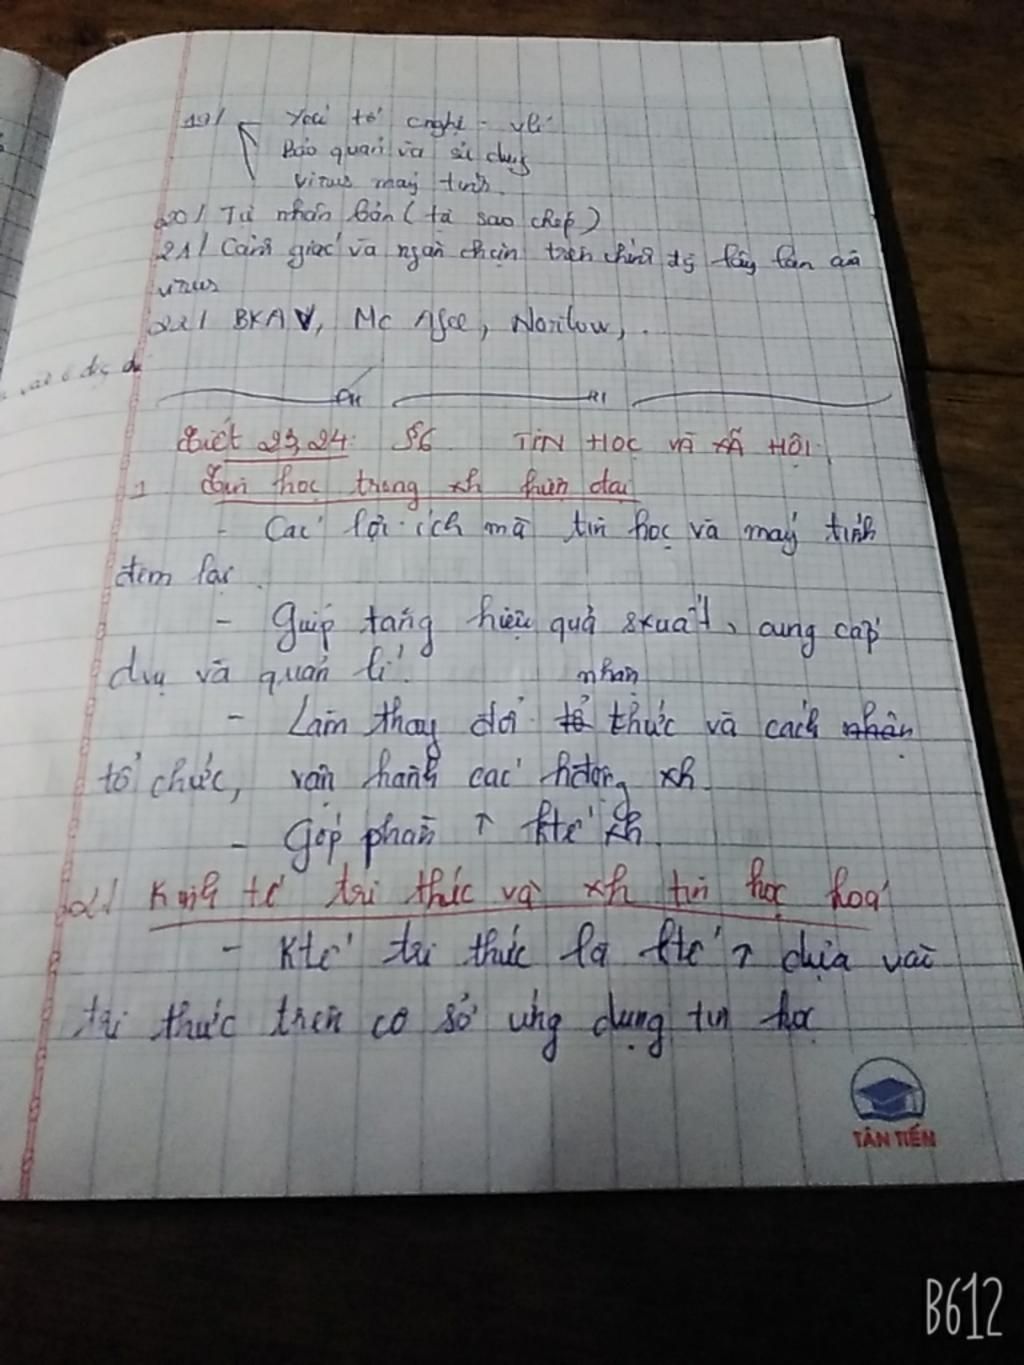 19/ - Yếu tố cnghệ - vlí
Bảo quản và sử dụng
virus máy tính.
20/ Tự nhân bản (tự sao chép)
21/ Cảnh giác và ngăn chặn trên chính đg lây lan của
virus
22/ BKAV, Mc Afee, Norilow, .
Tiết 23, 24: §6 TIN HỌC VÀ XÃ HỘI.
1 Tin học trong xh hiện đại
- Các lợi ích mà tin học và máy tính
đem lại.
- Giúp tăng hiệu quả sxuất, cung cấp
dvụ và quản lí.
nhận
- Làm thay đổi tổ thức và cách nhận
tổ chức, vận hành các hđộng xh.
- Góp phần ↑ ktế xh.
2/ Kinh tế tri thức và xh tin học hoá
- Ktế tri thức là ktế ↑ dựa vào
tri thức trên cơ sở ứng dụng tin học
TÂN TIẾN
B612